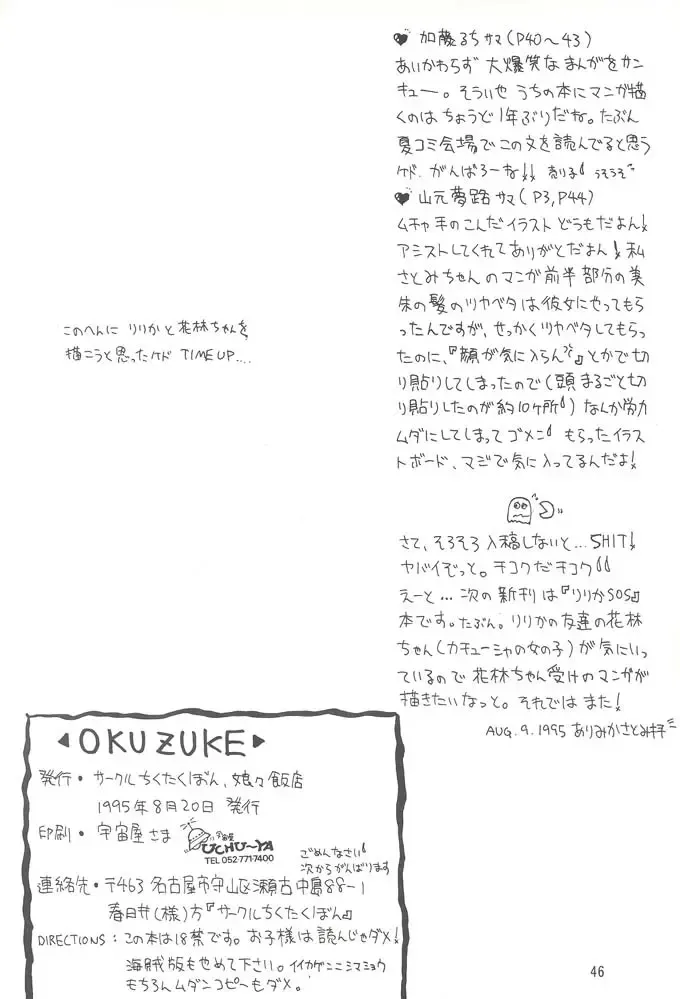 ♥ 加藤るち サマ(P40〜43)
あいかわらず 大爆笑なまんがをサン
キュー。そういや うちの本にマンガ描
くのは ちょうど1年ぶりだな。たぶん
夏コミ会場でこの文を読んでると思う
ケド、がんばろーな!! 売り子 うそうそ
♥ 山元夢路サマ(P3,P44)
ムチャ手のこんだイラスト どうもだよん!
アシストしてくれてありがとだよん! 私
さとみちゃんのマンガ前半部分の美
朱の髪のツヤベタは彼女にやってもら
ったんですが、せっかくツヤベタしてもらっ
たのに、『顔が気に入らん』とかで切
り貼りしてしまったので(頭まるごと切
り貼りしたのが約10ヶ所)なんか労力
ムダにしてしまってゴメン もらったイラス
トボード、マジで気に入ってるんだよ!
このへんに りりかと花林ちゃんを
描こうと思ったケド TIME UP....
さて、そろそろ入稿しないと…SHIT!
ヤバイぞっと。チコクだチコク
えーと…次の新刊は『りりかSOS』
本です。たぶん。りりかの友達の花林
ちゃん(カチューシャの女の子)が気にいっ
ているので 花林ちゃん受けのマンガが
描きたいなっと。それでは また!
AUG.9.1995 ありみかさとみ拝
◀OKUZUKE▶
発行・サークルちくたくぼん、娘々飯店
1995年8月20日 発行
印刷・宇宙屋さま
宇宙屋
UCHU〜YA
TEL 052-771-7400
ごめんなさい
次からがんばります
連絡先・〒463 名古屋市守山区瀬古中島88-1
春日井(様)方『サークルちくたくぼん』
DIRECTIONS:この本は18禁です。お子様は読んじゃダメ!
海賊版もやめて下さい。イイカゲンニシマショウ
もちろんムダンコピーもダメ。
46